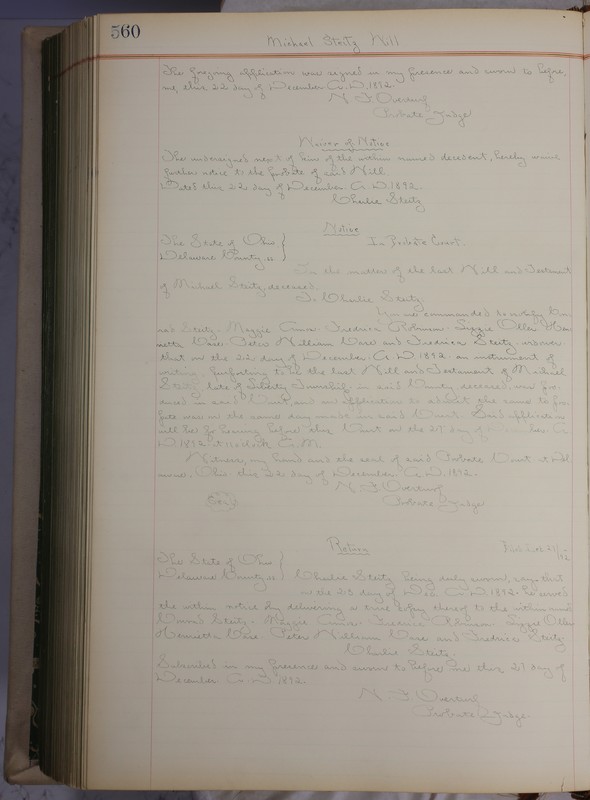 560
Michael Steitz Will
The foregoing application was signed in my presence and sworn to before
me, this 22 day of December A.D. 1892
Probate Judge
Waiver of Notice
The undersigned next of kin of the within named decedent, hereby waive
further notice to the probate of said Will.
Dated this 22 day of December A.D. 1892.
Charlie Steitz
Notice
The State of Ohio } In Probate Court.
Delaware County ss
In the matter of the last Will and Testament
of Michael Steitz, deceased.
To Charlie Steitz
You are commanded to notify
Steitz. Maggie Fredrica Lizzie
Peter William and Fredrica Steitz
that on the 22 day of December A.D. 1892. an instrument of
writing purporting to be the last Will and Testament of Michael
Steitz late of Liberty Township in said County, deceased was pro-
duced in said Court, and an application to admit the same to pro-
bate was on the same day made in said Court. Said application
will be for hearing before this Court on the 27 day of A.
D. 1892. at o'clock A.M.
Witness, my hand and the seal of said Probate Court, at
Ohio this 22 day of December A.D. 1892.
Seal
Probate Judge
Return
The State of Ohio }
Delaware County ss } Charlie Steitz being duly sworn, says that
on the 23 day of Dec A.D. 1892. he served
the within notice by delivering a true copy thereof to the within named
Steitz. Maggie Fredrica Lizzie
Henrietta Peter William and Fredrica Steitz
Charlie Steitz.
Subscribed in my presence and sworn to before me this 27 day of
December A.D. 1892
Probate Judge.